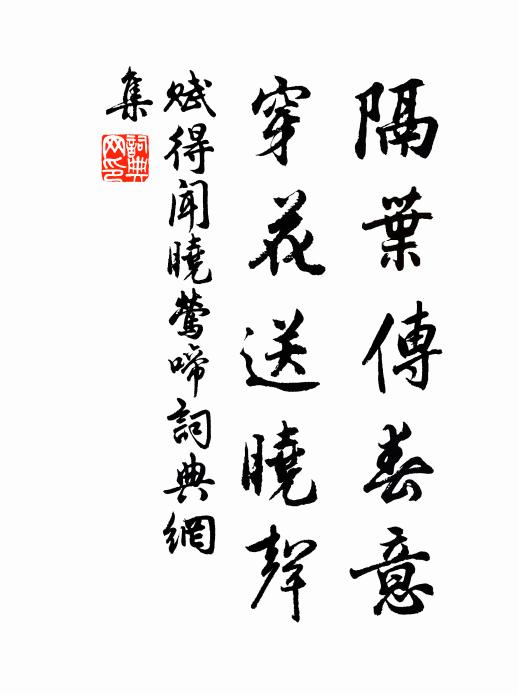 隔葉傳春意
穿花送曉聲
賦得聞曉鶯啼詞典網
集
詞典
网印